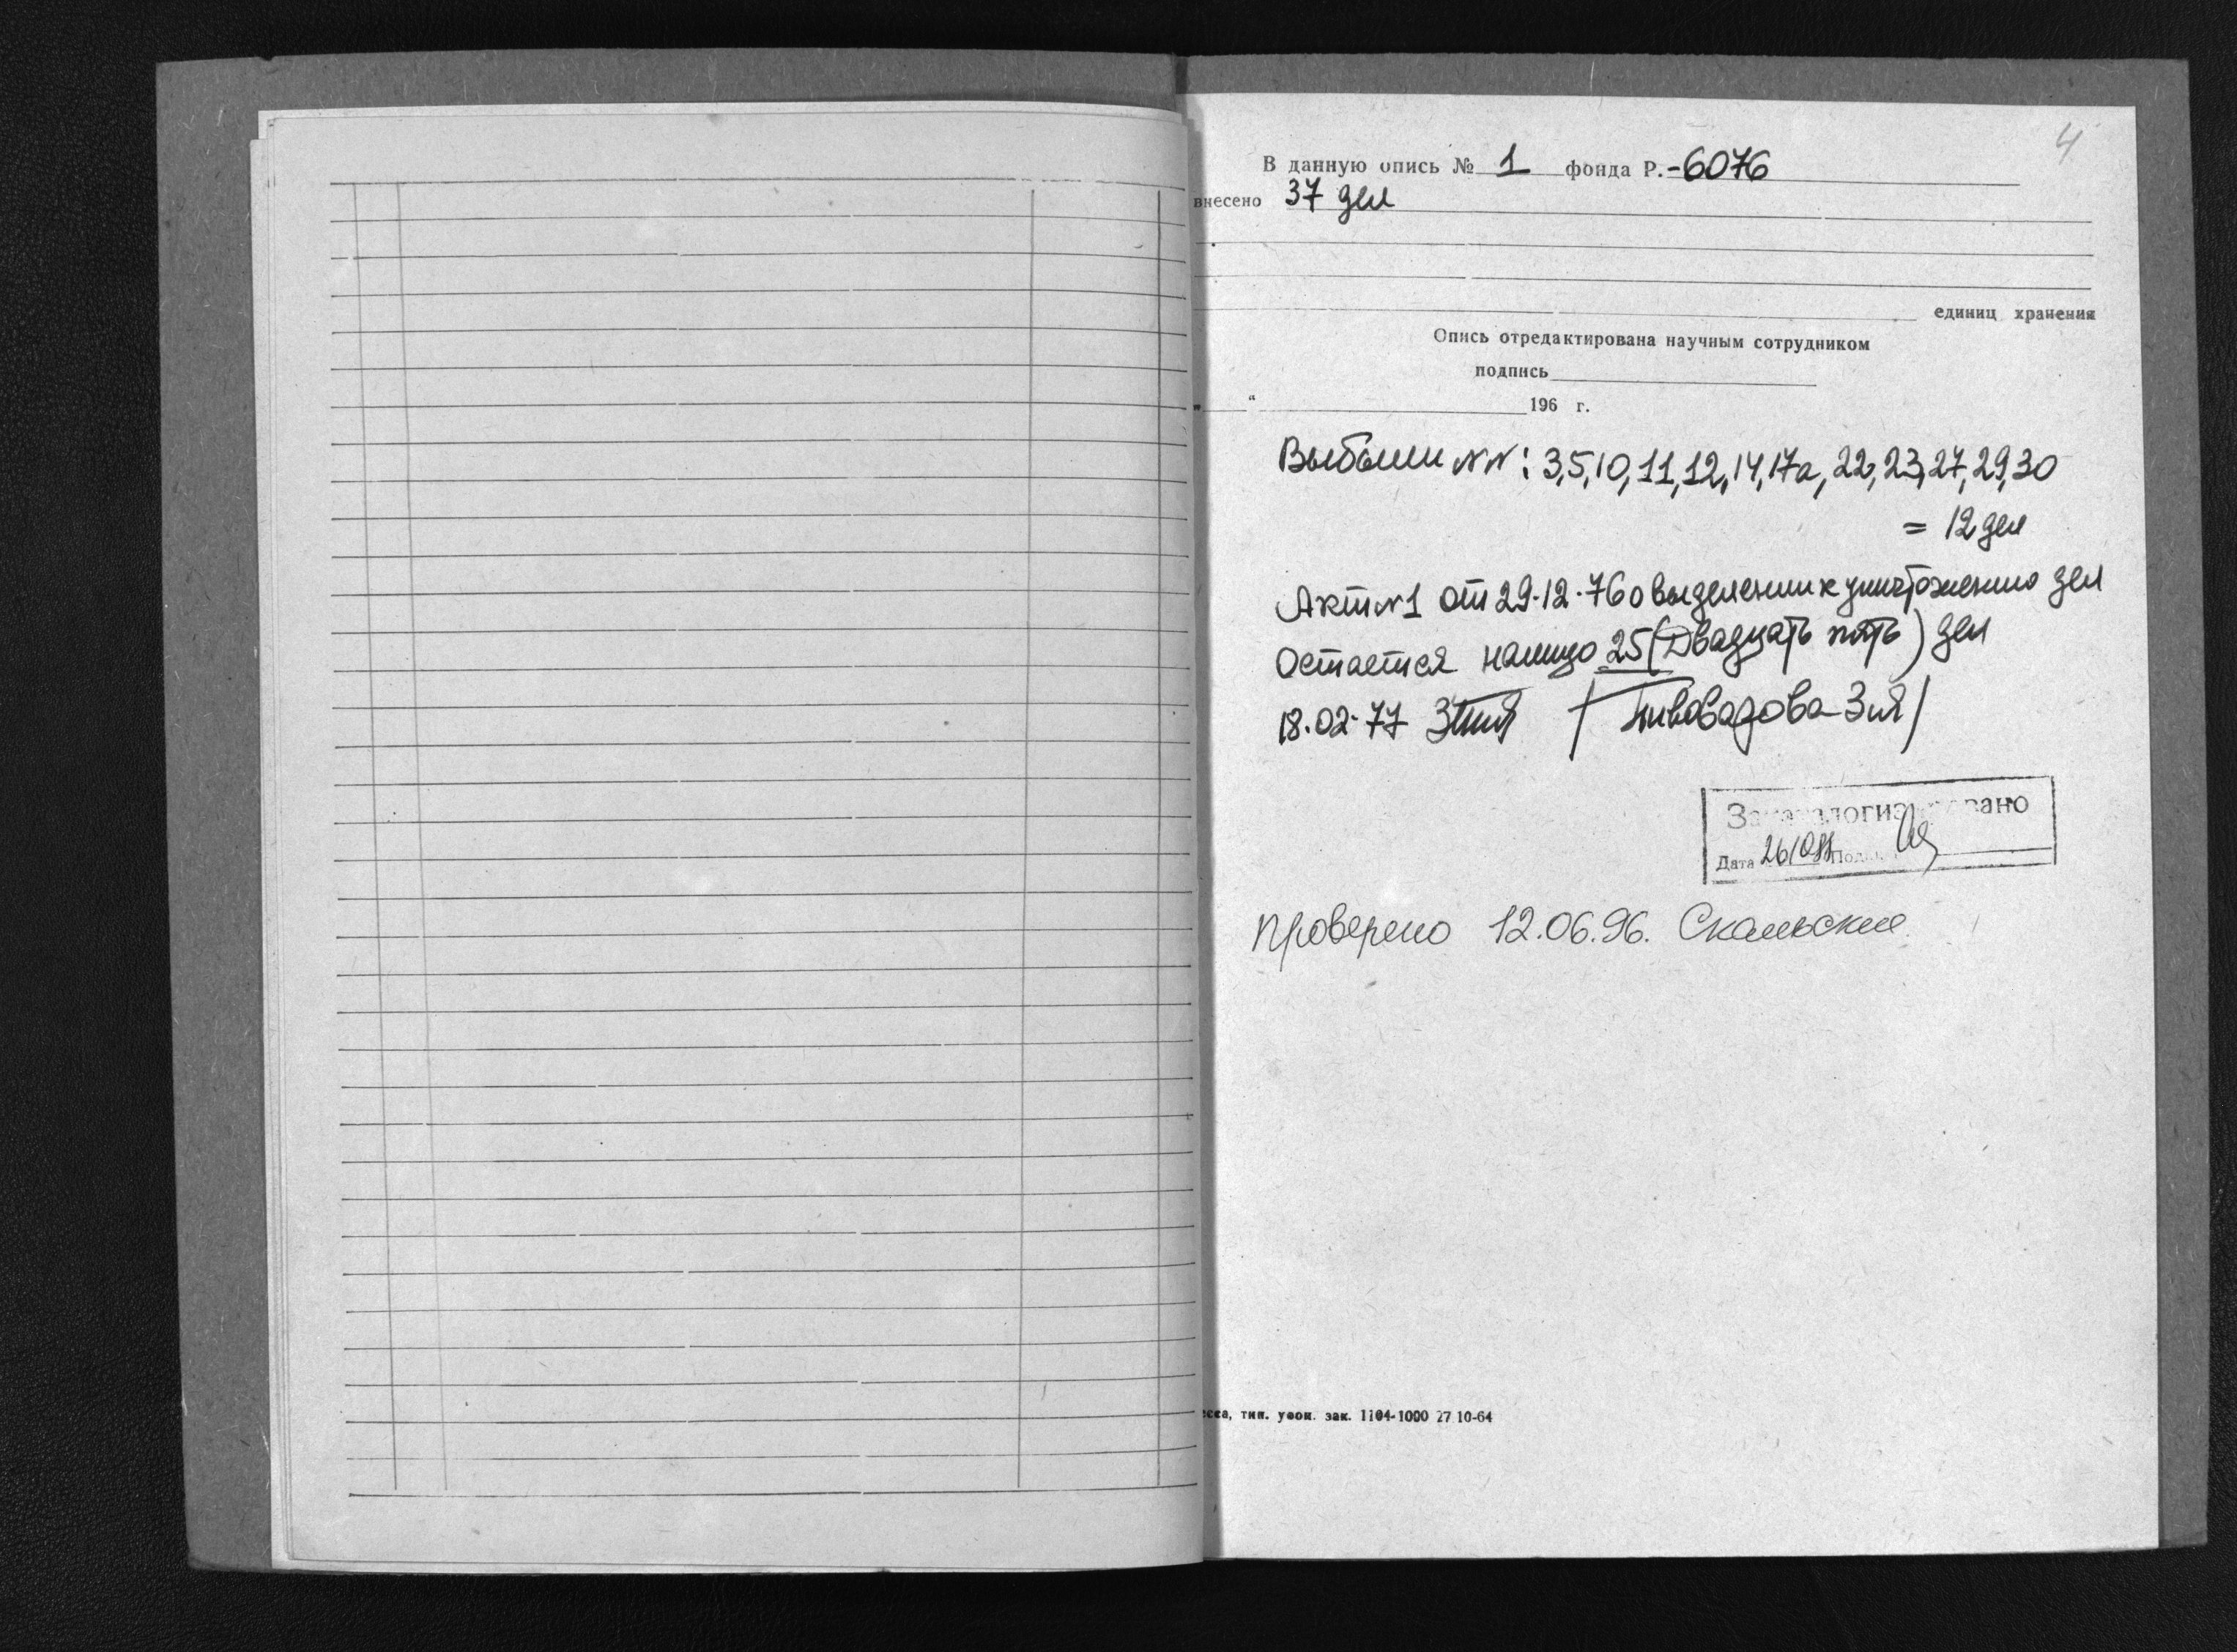 4
В данную опись № 1 фонда Р.-6076
внесено 37 дел
единиц хранения
Опись отредактирована научным сотрудником
подпись
„ “ 196 г.
Выбыли №№: 3,5,10,11,12,14,17а,22,23,27,29,30
= 12 дел
Акт №1 от 29.12.76 о выделении к уничтожению дел
Остается налицо 25 (Двадцать пять) дел
18.02.77 /Пивоварова З.Я/
Закаталогизировано
Дата Подп.
Проверено 12.06.96.
тип. зак. 1104-1000 27 10-64